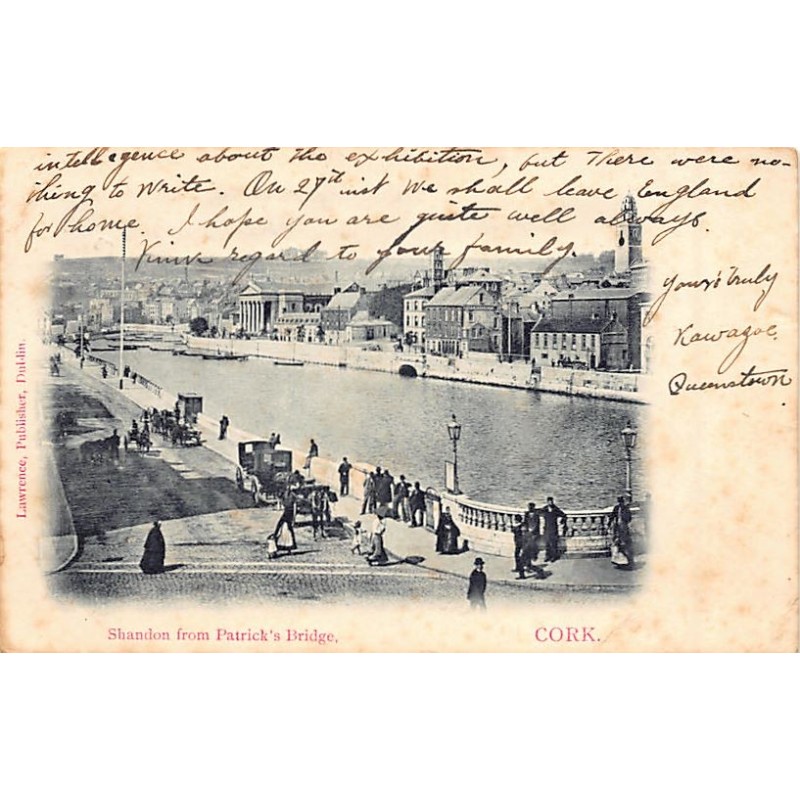 intelligence about the exhibition, but there were no-
thing to write. On 27th inst we shall leave England
for home. I hope you are quite well always.
regard to your family.
Yours truly
Kawazoe.
Queenstown
Lawrence, Publisher, Dublin.
Shandon from Patrick's Bridge,
CORK.